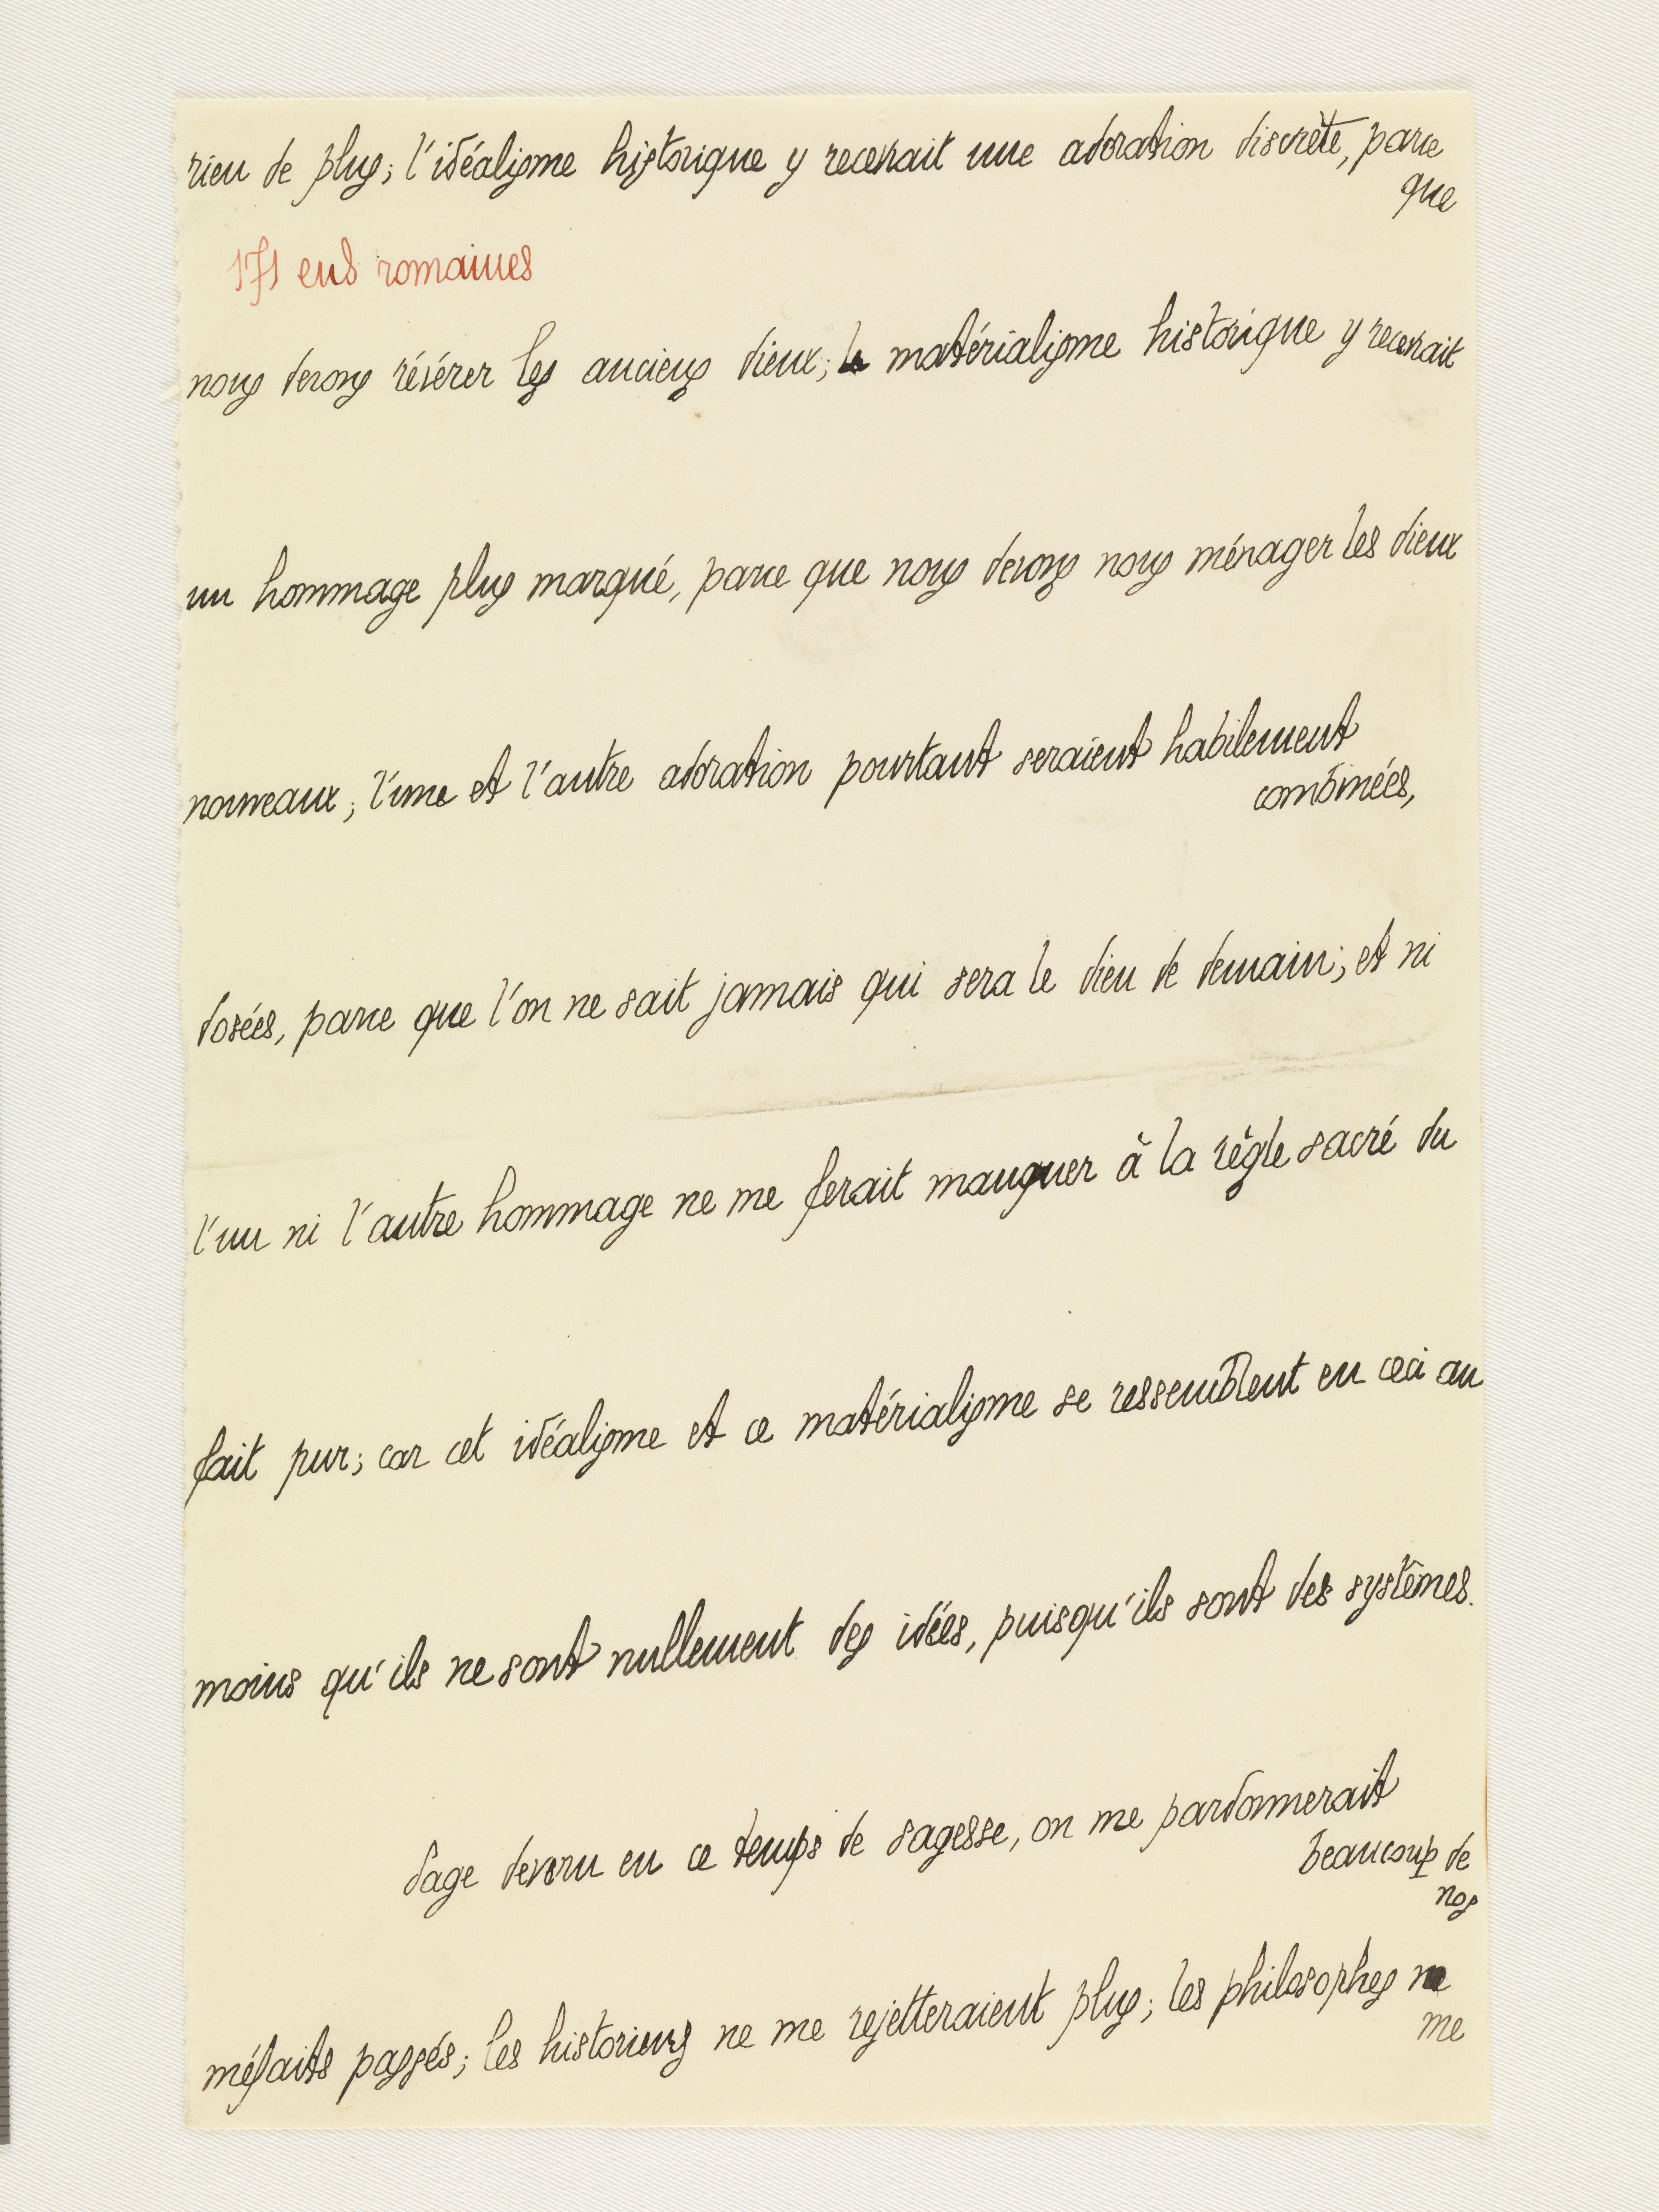 rien de plus; l'idéalisme historique y recevrait une adoration discrète, parce
que
171 end romaines
nous devons révérer les anciens dieux; le matérialisme historique y recevrait
un hommage plus marqué, parce que nous devons nous ménager les dieux
nouveaux; l'une et l'autre adoration pourtant seraient habilement
combinées,
dosées, parce que l'on ne sait jamais qui sera le dieu de demain; et ni
l'un ni l'autre hommage ne me ferait manquer à la règle sacré du
fait pur; car cet idéalisme et ce matérialisme se ressemblent en ceci au
moins qu'ils ne sont nullement des idées, puisqu'ils sont des systèmes.
Sage devenu en ce temps de sagesse, on me pardonnerait
beaucoup de
nos
méfaits passés; les historiens ne me rejetteraient plus; les philosophes ne
me